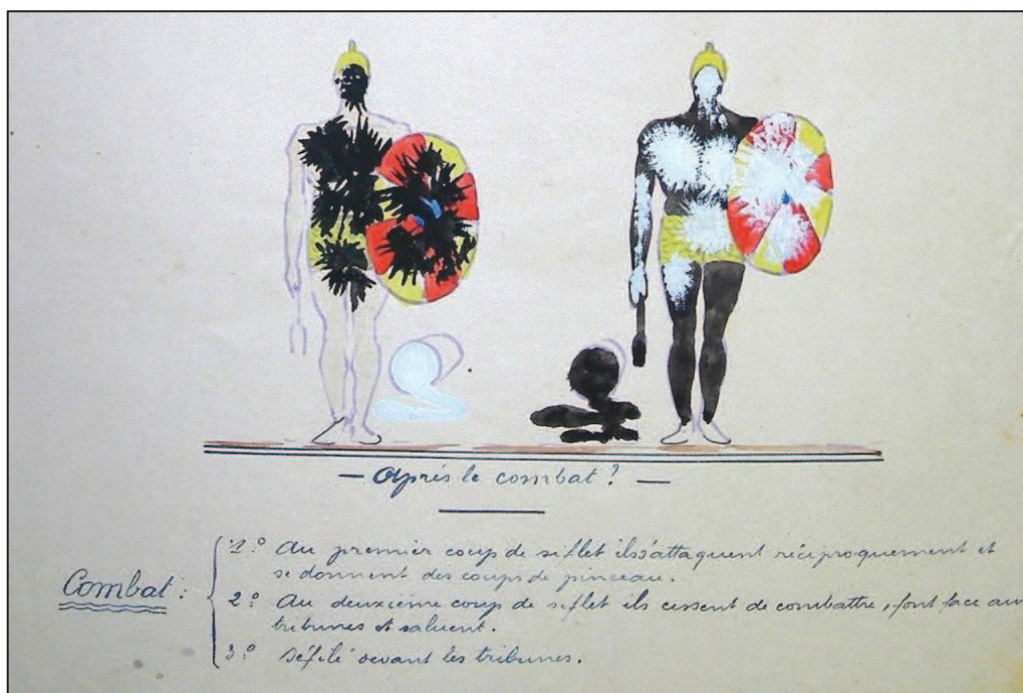 — Après le combat ! —
Combat :
1° Au premier coup de siflet ils s'attaquent réciproquement et
se donnent des coups de pinceau.
2° Au deuxième coup de siflet ils cessent de combattre, font face aux
tribunes et saluent.
3° Défilé devant les tribunes.